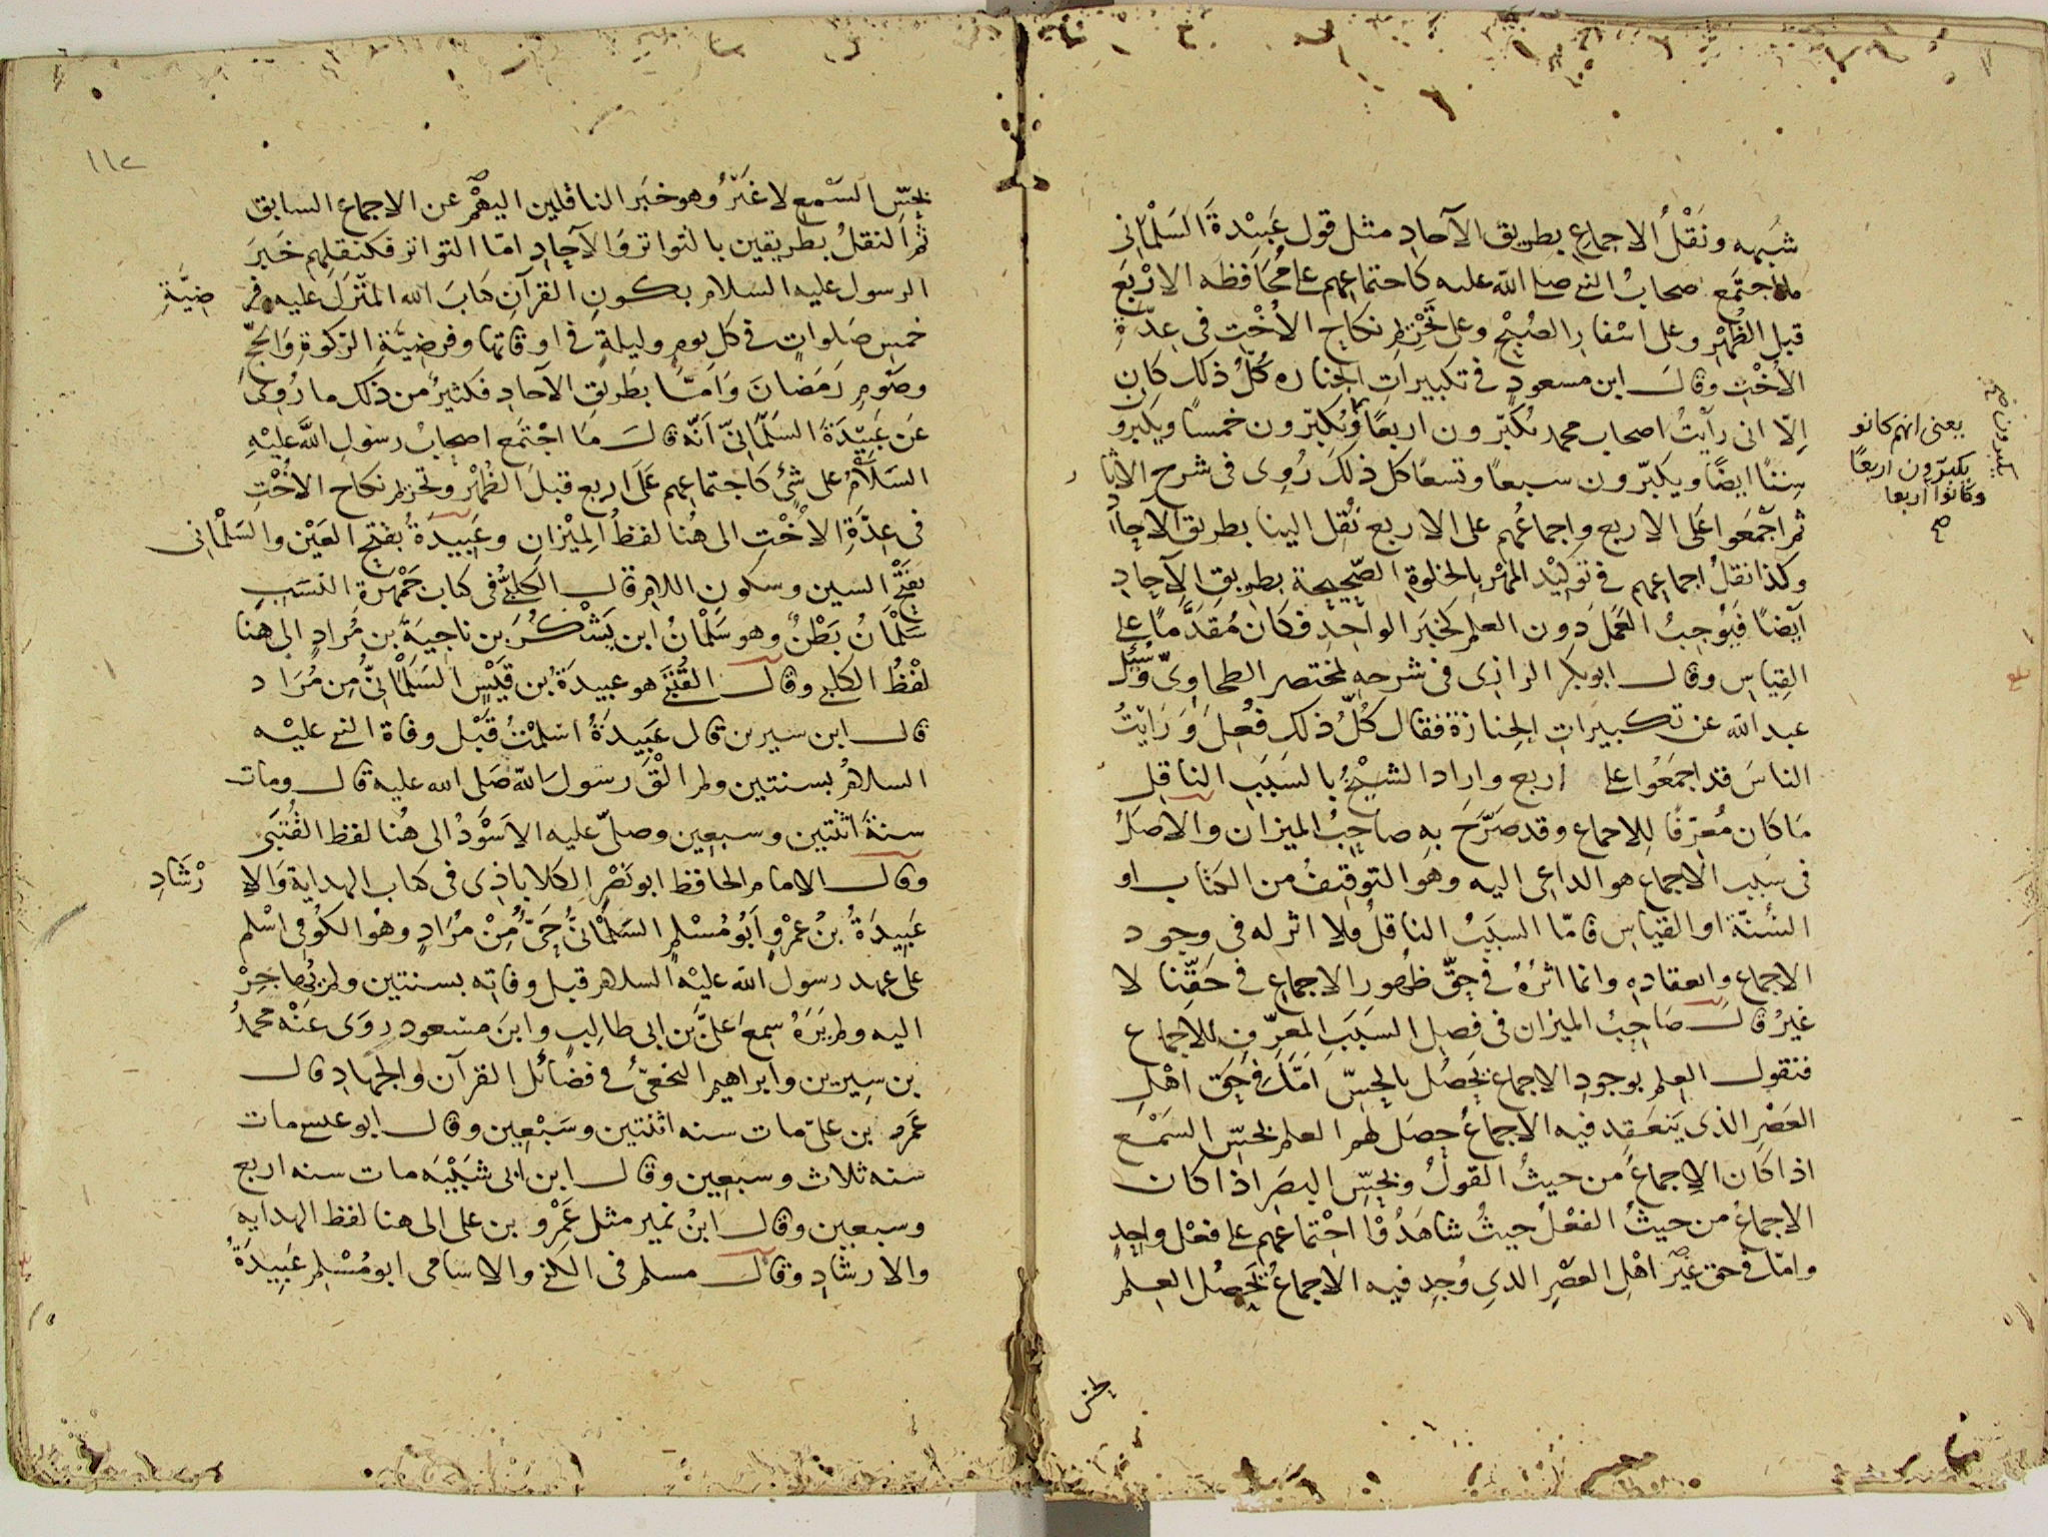 شبهه ونَقْلُ الاجماعِ بطريق الآحادِ مثل قول عَبِيْدةَ السَلْمانى
ما اجتمَع اصحابُ النبى صلى الله عليه كاجتماعهم على مُحَافظه الارْبَع
قبل الظُهْرِ وعلى اسْفارِ الصُبْحِ وعلى تَحْرِيْمِ نكاحِ الأخْتِ فى عِدّةِ
الأخْتِ وقالَ ابن مسعودٍ فى تكبيراتِ الجنازه كُلّ ذلك كان
اِلّا انى رأيْتُ اصحاب محمد يُكبّرون اربعًا ويُكبّرون خمسًا ويكبرو
سِتًا ايضًا ويكبّرون سبعًا وتسعًا كل ذلك رُوِى فى شرح الاثار
ثم اَجْمَعوا عَلى الاربع واجماعُهم على الاربع نُقِل الينا بطريق الاحاد
وكذا نقلُ اجماعهم فى توكيْد المَهْر بالخلوةِ الصّحيحة بطريقِ الآحادِ
اَيضًا فيُوجِبُ العَمَلَ دون العلمِ كخبَر الواحِدِ فكان مُقَدَّمًا على
القِيَاسِ وقال ابو بكر الرازى فى شرحه لمختصر الطحاوِىّ وسُئل
عبد الله عن تكبيرَاتِ الجِنازة فقال كُلّ ذلك فُعِلَ وَرَايْتُ
الناسَ قد اجمَعُوا على اربع واراد الشَيْخُ بالسَبَبِ الناقِل
مَا كان مُعرّفًا لِلاجماع وقد صَرَّحَ به صاحِبُ الميزان والاصلُ
فى سَبَبِ الاجماع هو الداعِى اليه وهو التوقيفُ من الكتاب او
السُنّة او القياسِ فامّا السبَبُ الناقلُ فلا اثر له فى وجود
الاجماع وانعقادِهِ وانما اثرُهُ فى حقِّ ظهور الاجماع فى حَقِّنا لا
غيرُ قالَ صَاحِبُ الميزان فى فصل السَبَبِ المعرّف للاجماع
فنقول العِلم بوجودِ الاجماع يَحصُل بالحِسّ اَمّا فى حَق اهْلِ
العَصْر الذى يَنعَقِد فيه الاجماعُ حصَل لهم العلم بحسِّ السَمْع
اذا كان الاِجماعُ من حيثُ القولُ وبحِسِّ البصَر اذا كان
الاجماعُ من حيثُ الفعْلُ حيثُ شاهَدُوْا اجْتماعهم على فعْل واحِدٍ
وامّا فى حق غيْر اهْلِ العصْرِ الذى وُجِد فيه الاجماعُ يَحصُل العِلم
يعنى انهم كانو
يكبّرون اربعًا
وكانوا اربعا
صح
يكبرون صح
بحسّ
١١٢
بحِسِّ السَمْعِ لا غيْرُ وهو خبَر الناقلين اليهْم عن الاجماع السابق
ثمّ النقلُ بطريقين بالتواتر وَالآحادِ امّا التواتر فكنقلهم خَبَرَ
الرسول عليه السلام بكونِ القرآنِ كتابَ الله المنْزَلَ عليه وفر ضِيَّةِ
خمسِ صَلواتٍ فى كلِ يومٍ وليلةٍ فى اوقاتها وفرضِيَّةِ الزكوةِ وَالحَجّ
وصَومِ رَمَضانَ وَامّا بطَريقِ الآحادِ فكثيرُ من ذلك ما رُوِىَ
عَن عَبِيْدَةَ السَلْمانِىّ اَنّه قالَ مَا اجْتمَع اصحابُ رسول الله عليْهِ
السَلامُ على شئ كاجتماعهم عَلَى اربع قبلَ الظُهْرِ وتحريم نكاح الأُخْتِ
فى عِدّةِ الاُخْتِ الى هُنا لفظُ المِيْزانِ وعَبيْدَةُ بفتحِ العَيْن والسَلْمانى
بفَتْحِ السين وسكون اللام قال الكَلبِىُّ فى كتاب جَمْهَرة النسَبِ
سَلْمَانُ بَطْنٌ وهو سَلْمانُ ابن يَشْكُرَ بن ناجيةَ بن مُرادٍ الى هنا
لفْظُ الكلبى وقال القُتَبِىّ هو عبيدَةُ بن قَيْسٍ السَلْمانىُّ مِن مُرَاد
قال ابن سيرين قال عَبِيدَةُ اسْلمْتُ قَبْل وفاة النبى عليْه
السلامُ بسنتين ولم الْقَ رسولَ الله صَلى الله عليه قال ومات
سنةَ اثْنتين وسبعين وصلّى عليه الاَسْوَدُ الى هُنا لفظ القُتَبِى
وقال الامام الحافظ ابو نَصْرٍ الكلاباذى فى كتاب الهدايةِ وَالاِ رْشَادِ
عَبِيدَةُ بنُ عمْرٍو اَبُو مُسْلمٍ السَلْمانىُّ حَىٌّ مِّنْ مُرَادٍ وهُو الكوُفِى اسْلم
على عهد رسول الله عليْه السلام قبل وفاته بسنتين ولم يُهاجِرْ
اليه ولم يَرَهُ سمِعَ علىَّ بْنَ ابى طالِبٍ وابنَ مسْعودٍ روَى عَنْه محمدُ
بن سِيرِين وابراهيم النخعىُّ فى فضائل القرآن والجهادِ قال
عَمرو بن علىّ مات سنه اثنتين وسَبْعِين وقال ابو عيسى مات
سنه ثلاث وسبعين وقال ابن ابى شَيْبَه مات سنه اربع
وسبعين وقال ابنُ نمير مثل عَمْرو بن على الى هنا لفظ الهدايه
والارشادِ وقال مسلم فى الكنى والاسامى ابو مُسْلِمٍ عَبِيدَةُ